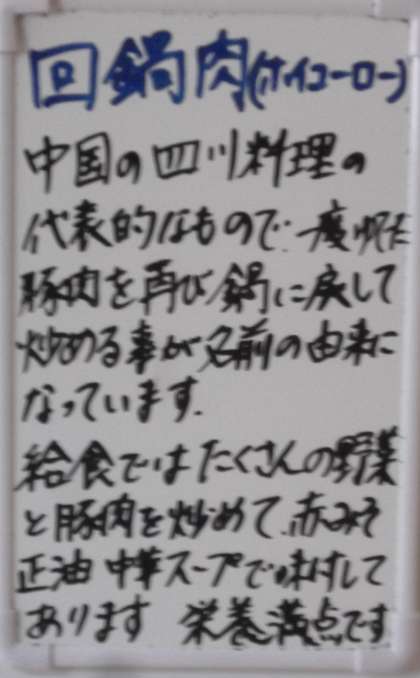 回鍋肉(ホイコーロー)
中国の四川料理の
代表的なもので一度ゆでた
豚肉を再び鍋に戻して
炒める事が名前の由来に
なっています.
給食ではたくさんの野菜
と豚肉を炒めて、赤みそ
正油 中華スープで味付して
あります 栄養満点です